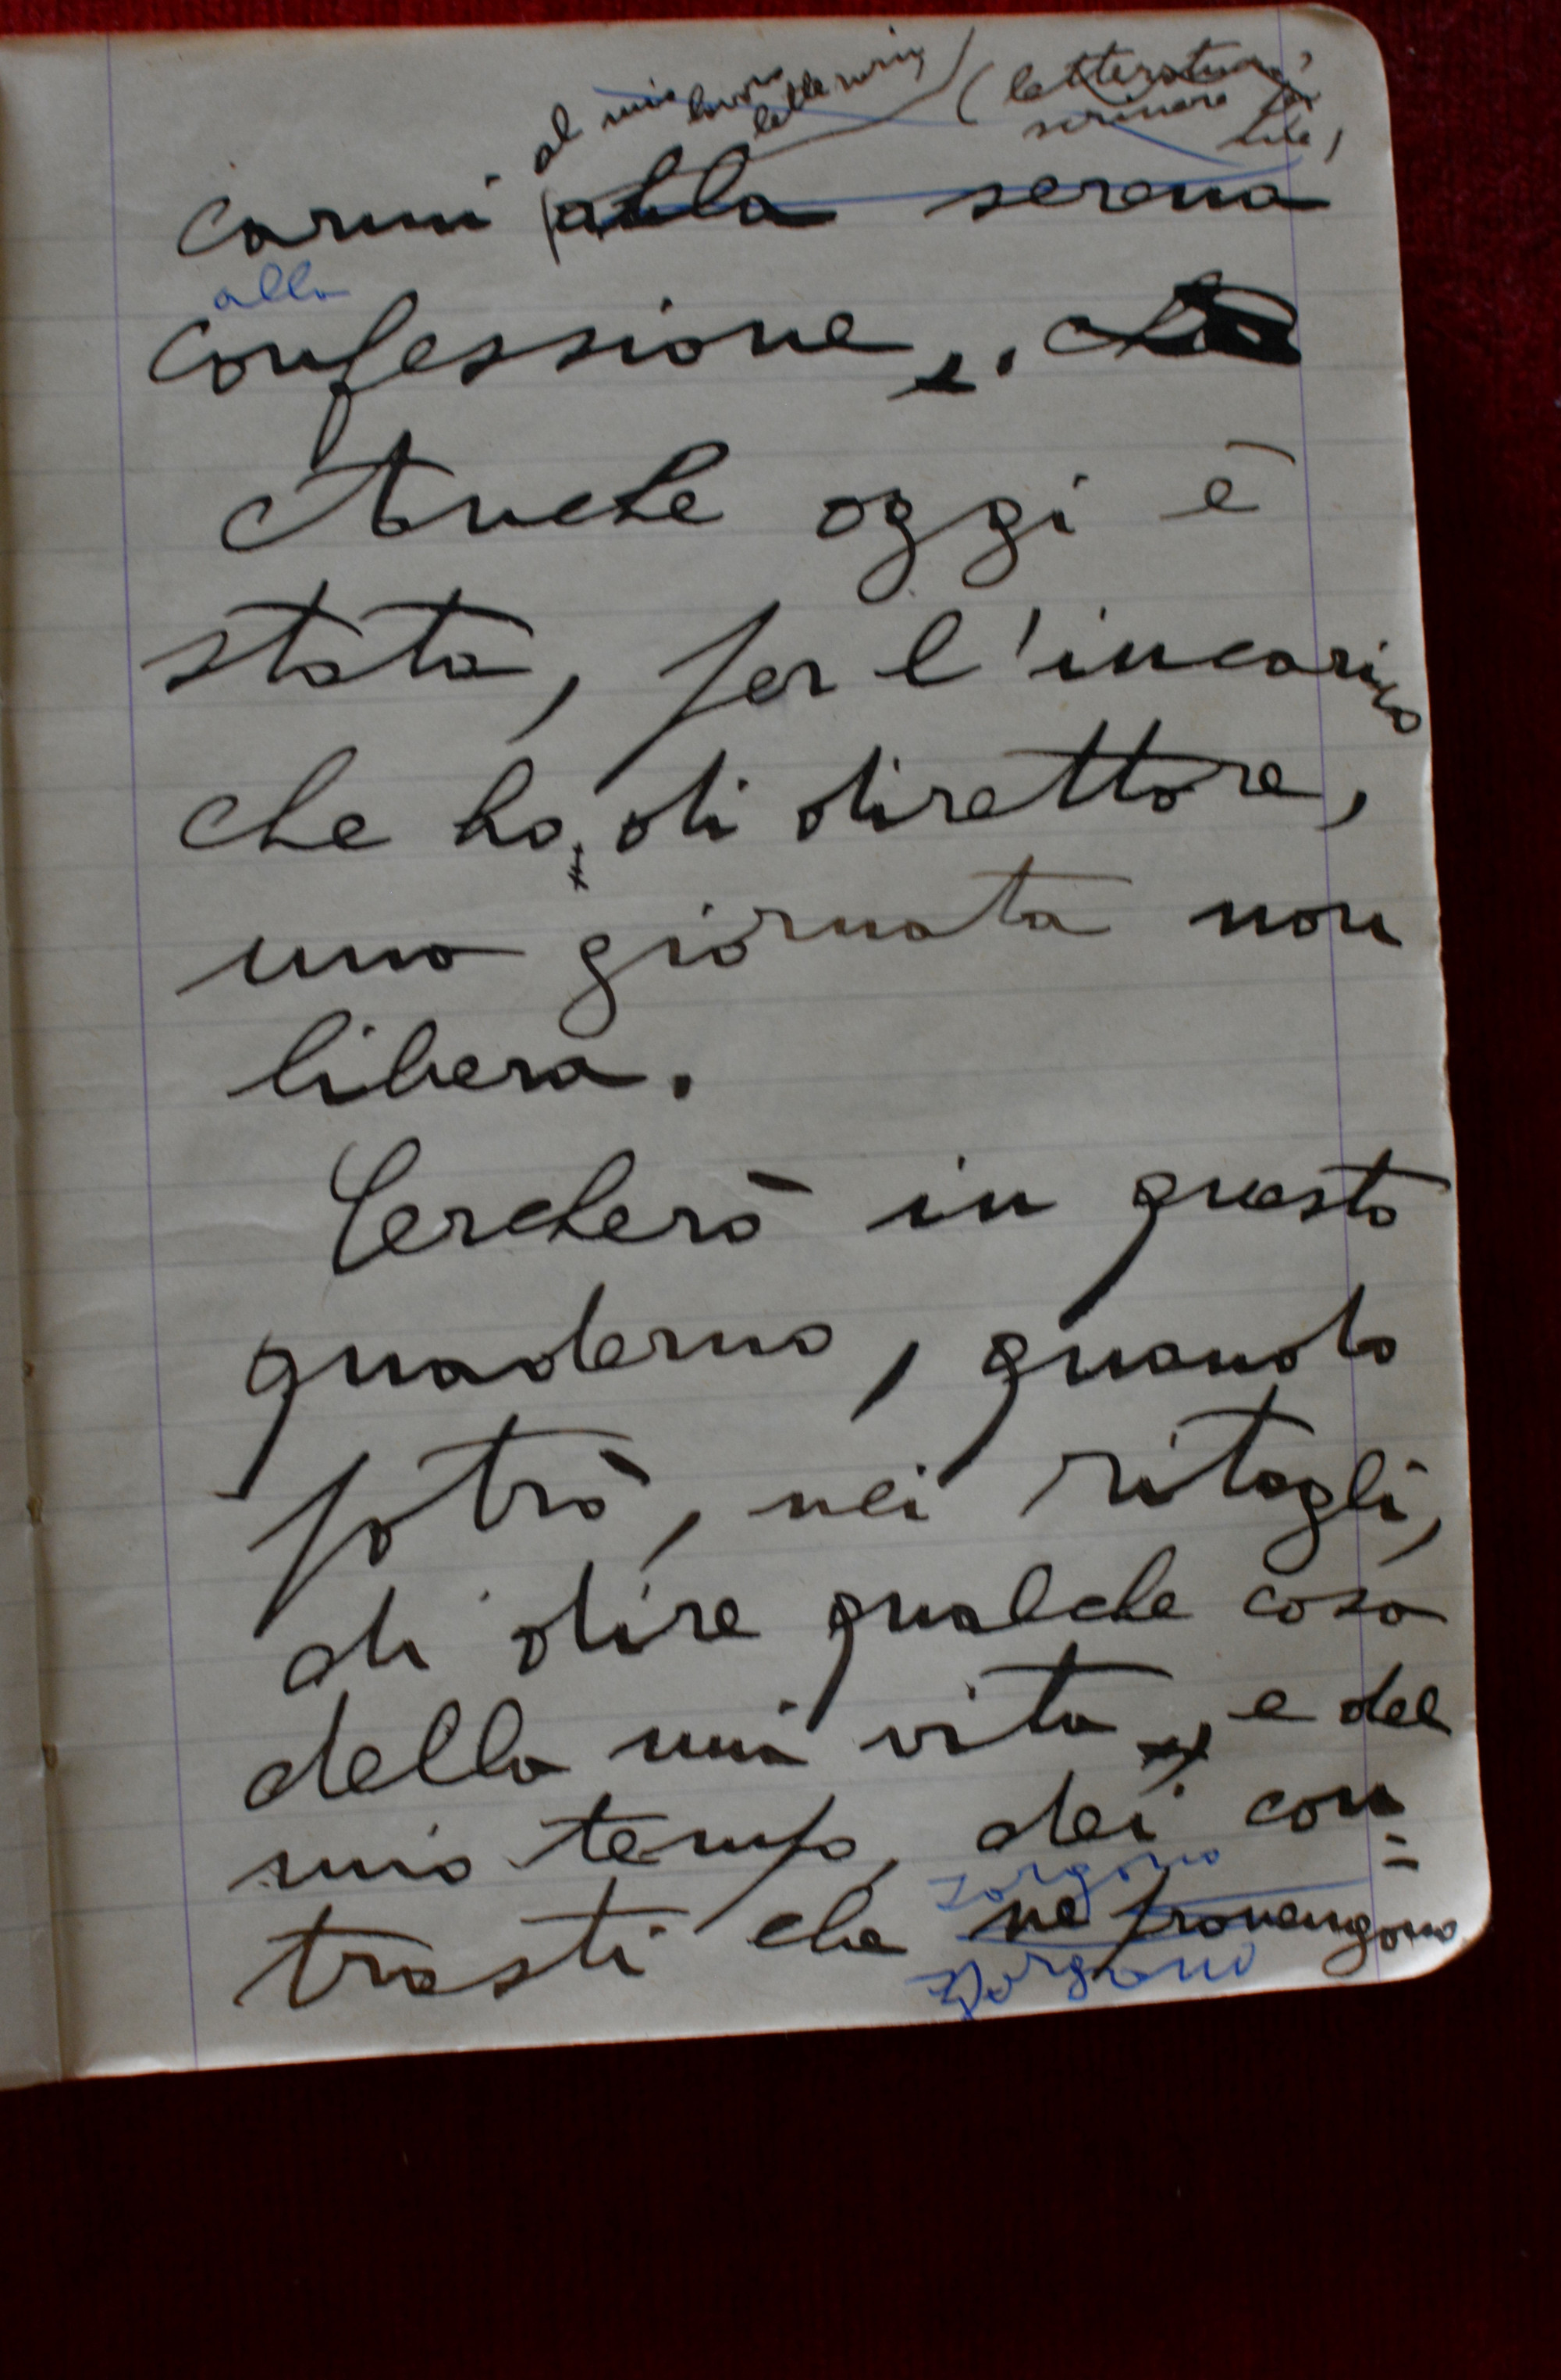 al mio lavoro letterario (letteratura,
scrivere
carmi alla serena
alla
confessione,
Anche oggi è
stata, per l'incarico
che ho, di direttore,
una giornata non
libera.
Cercherò in questo
quaderno, quando
potrò, nei ritagli,
di dire qualche cosa
della mia vita, e del
mio tempo, dei con=
sorgono
trasti che ne provengono
sorgono